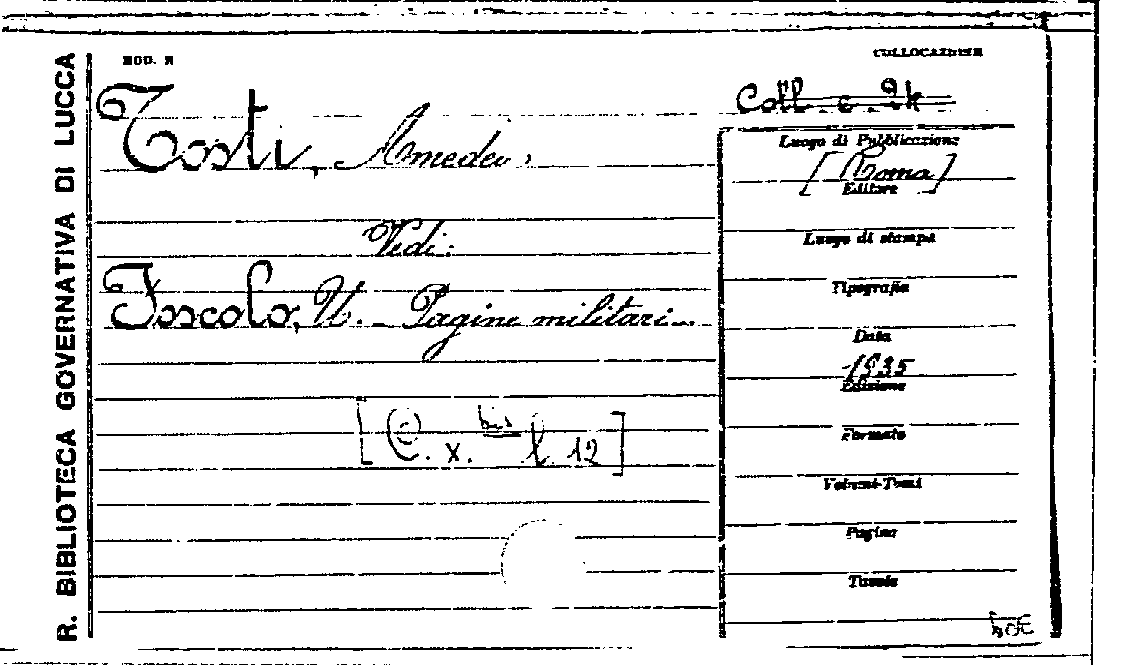 R. BIBLIOTECA GOVERNATIVA DI LUCCA
MOD. R
COLLOCAZIONE
Coll. c. 2k
Tosti, Amedeo,
Luogo di Pubblicazione
[Roma]
Editore
Vedi:
Luogo di stampa
Foscolo, U. - Pagine militari.
Tipografia
Data
1935
Edizione
[C. x. bis l. 12]
Formato
Volumi-Tomi
Pagine
Tavole